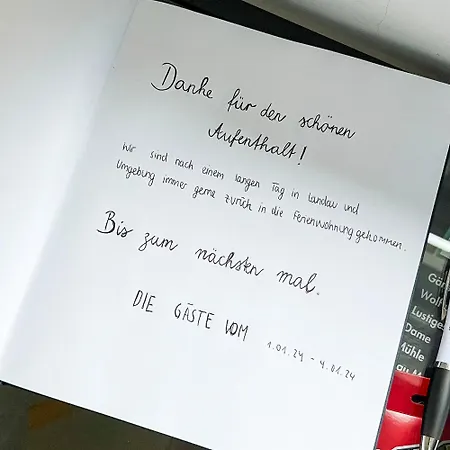 Danke für den schönen
Aufenthalt!
Wir sind nach einem langen Tag in Landau und
Umgebung immer gerne zurück in die Ferienwohnung gekommen.
Bis zum nächsten mal.
DIE GÄSTE VOM 1.01.24 - 4.01.24
Wolf
Lustige
Dame
Mühle